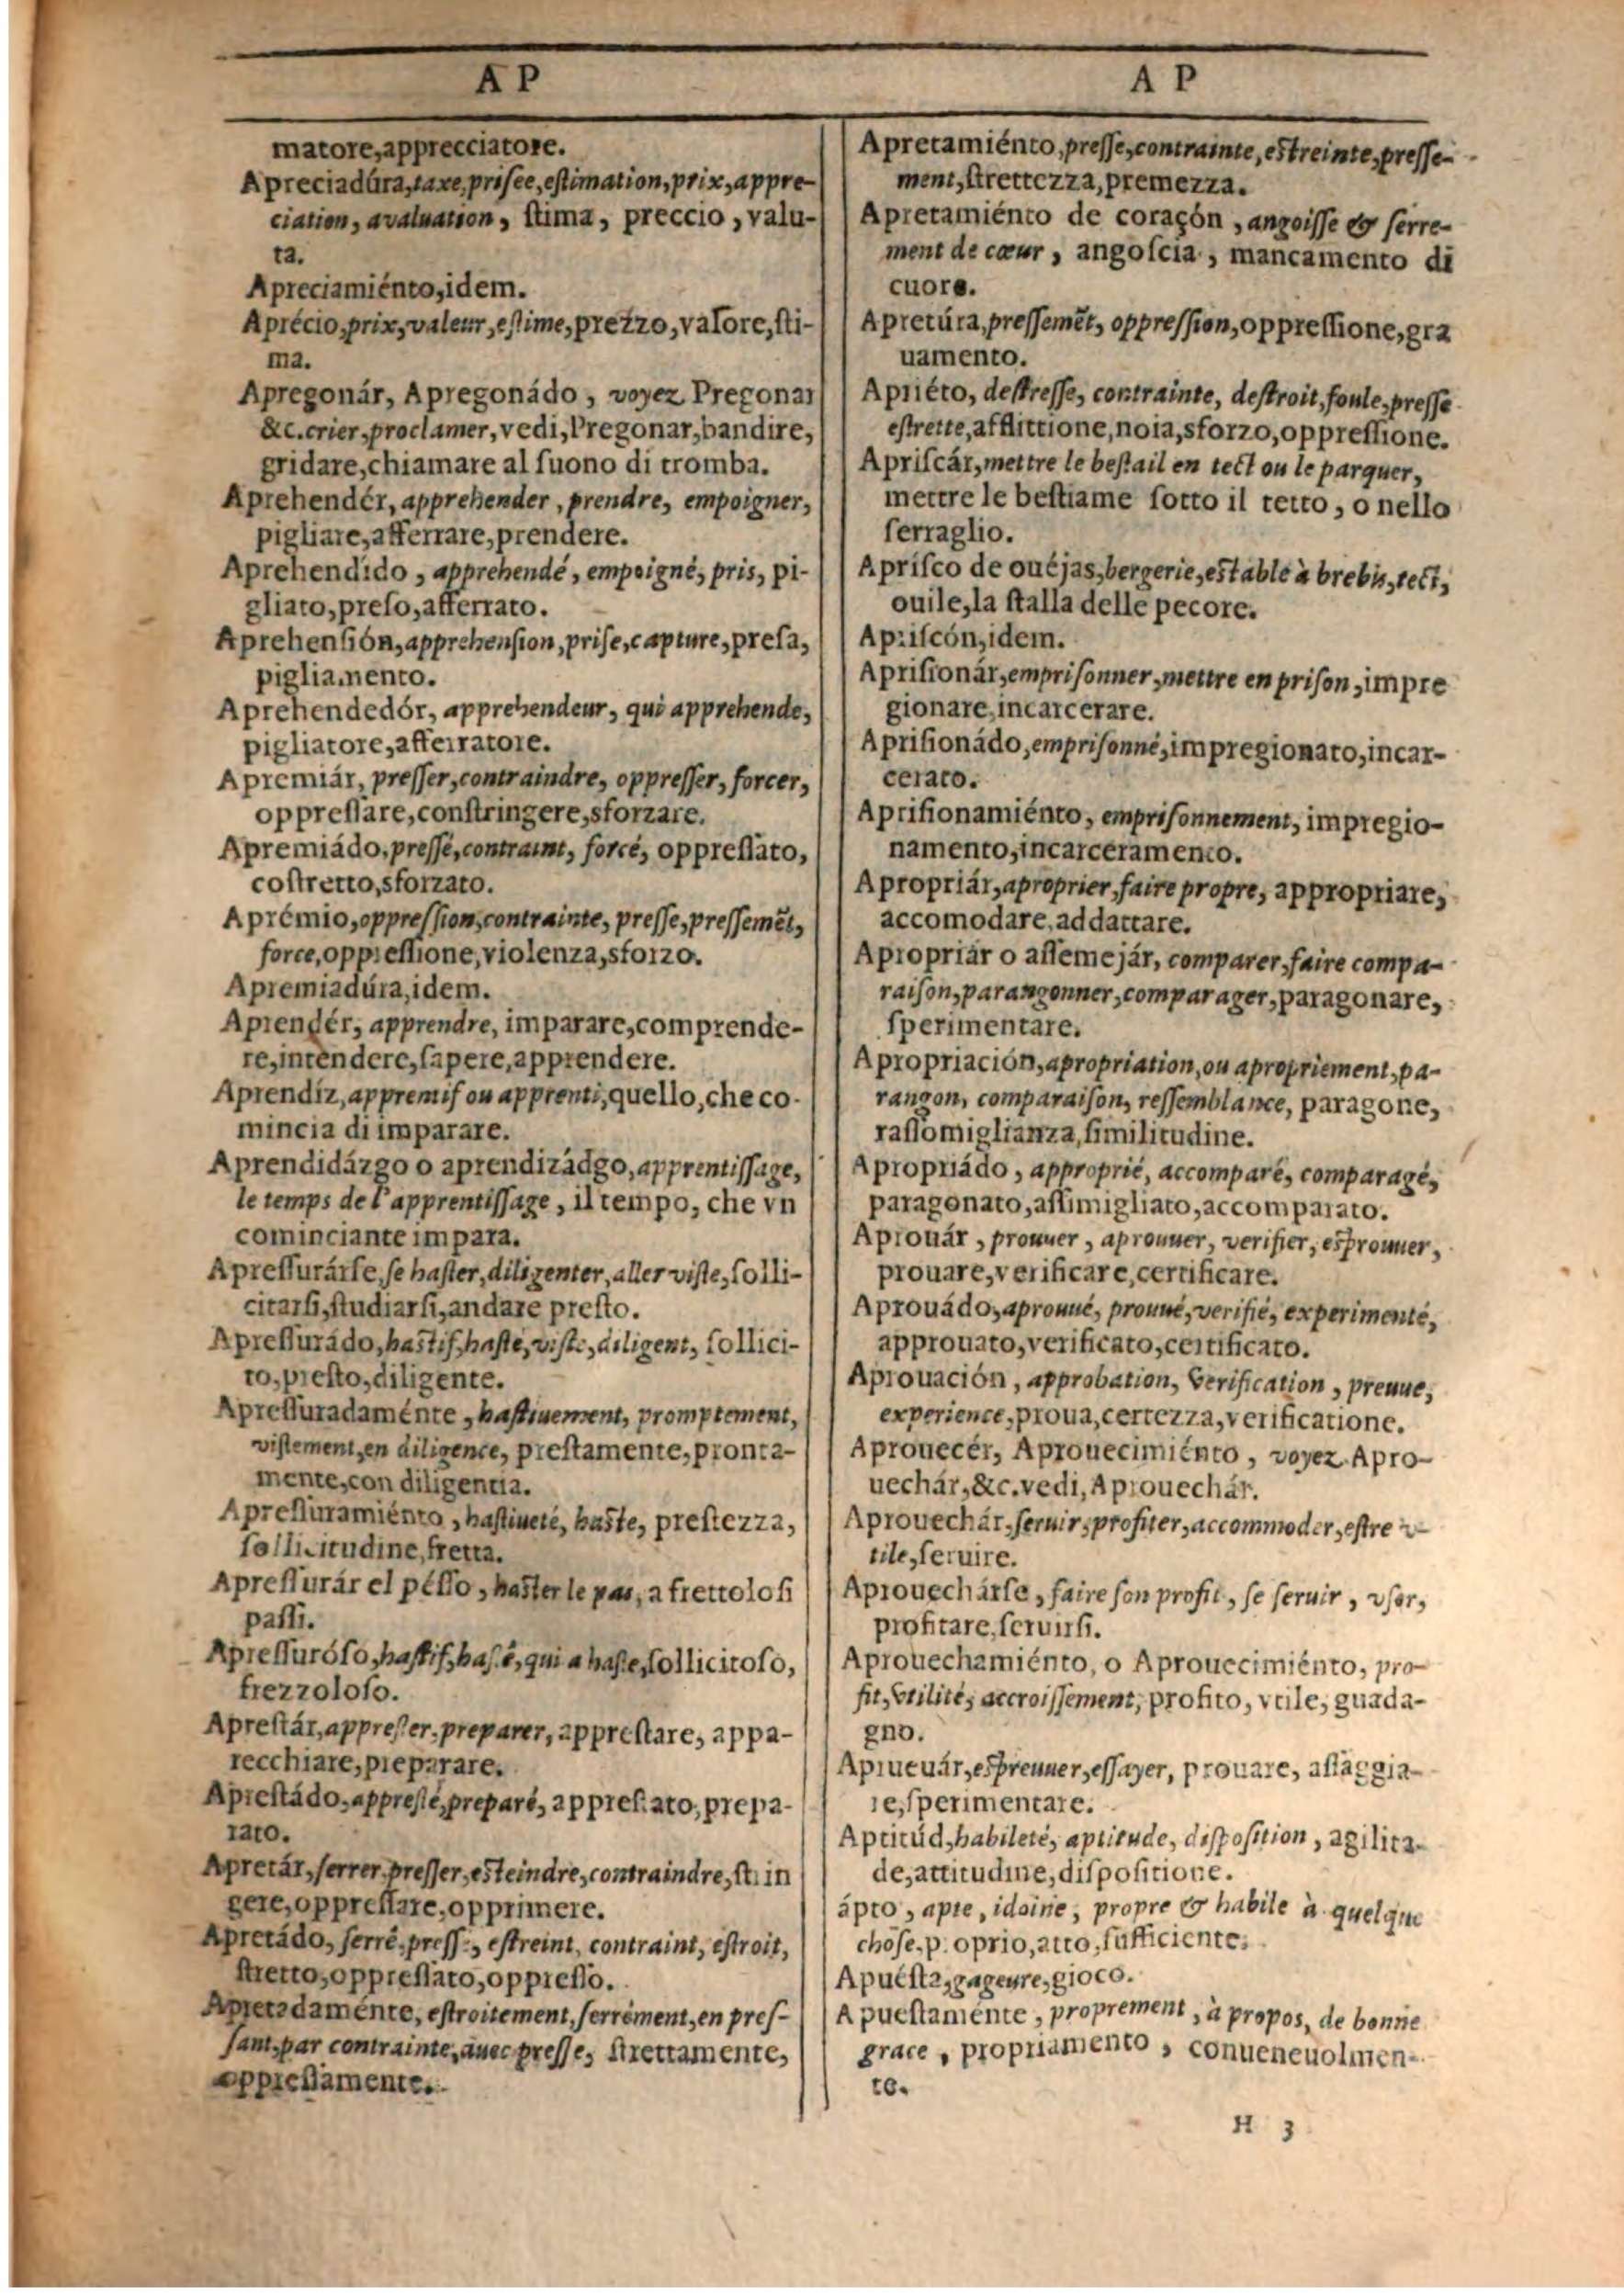 A P
matore,apprecciatore.
Apreciadúra,taxe,prisee,estimation,prix,appre-
ciation, avaluation, ſtima, preccio, valu-
ta.
Apreciamiénto,idem.
Aprécio,prix,valeur,estime,prezzo,valore,ſti-
ma.
Apregonár, Apregonádo, voyez Pregonar
&c.crier,proclamer,vedi,Pregonar,bandire,
gridare,chiamare al ſuono di tromba.
Aprehendér, apprehender, prendre, empoigner,
pigliare,afferrare,prendere.
Aprehendído, apprehendé, empoigné, pris, pi-
gliato,preſo,afferrato.
Aprehenſión,apprehenſion,priſe,capture,preſa,
pigliamento.
Aprehendedór, apprehendeur, qui apprehende,
pigliatore,afferratore.
Apremiár, preſſer,contraindre, oppreſſer, forcer,
oppreſſare,conſtringere,sforzare.
Apremiádo,preſſé,contraint, forcé, oppreſſato,
coſtretto,sforzato.
Aprémio,oppreſſion,contrainte, preſſe,preſſemẽt,
force,oppreſſione,violenza,sforzo.
Apremiadúra,idem.
Aprendér, apprendre, imparare,comprende-
re,intendere,ſapere,apprendere.
Aprendíz,apprentif ou apprenti,quello,che co-
mincia di imparare.
Aprendidázgo o aprendizádgo,apprentiſſage,
le temps de l'apprentiſſage, il tempo, che vn
cominciante impara.
Apreſſurárſe,ſe haſter,diligenter,aller viſte,ſolli-
citarſi,ſtudiarſi,andare preſto.
Apreſſurádo,haſtif,haſté,viſte,diligent, ſollici-
to,preſto,diligente.
Apreſſuradaménte, haſtiuement, promptement,
viſtement,en diligence, preſtamente,pronta-
mente,con diligentia.
Apreſſuramiénto, haſtiueté, haſte, preſtezza,
ſollicitudine,fretta.
Apreſſurár el péſſo, haſter le pas, a frettoloſi
paſſi.
Apreſſuróſo,haſtif,haſté,qui a haſte,ſollicitoſo,
frezzoloſo.
Apreſtár,appreſter,preparer, appreſtare, appa-
recchiare,preparare.
Apreſtádo,appreſté,preparé, appreſtato,prepa-
rato.
Apretár,ſerrer,preſſer,eſteindre,contraindre,ſtrin
gere,oppreſſare,opprimere.
Apretádo, ſerré,preſſé, eſtreint, contraint, eſtroit,
ſtretto,oppreſſato,oppreſſo.
Apretadaménte, eſtroitement,ſerrément,en preſ-
ſant,par contrainte,auec preſſe, ſtrettamente,
oppreſſamente.
A P
Apretamiénto,preſſe,contrainte,eſtreinte,preſſe-
ment,ſtrettezza,premezza.
Apretamiénto de coraçón, angoiſſe & ſerre-
ment de cœur, angoſcia, mancamento di
cuore.
Apretúra,preſſemẽt, oppreſſion,oppreſſione,gra
uamento.
Apriéto, deſtreſſe, contrainte, deſtroit,foule,preſſe
eſtrette,afflittione,noia,sforzo,oppreſſione.
Apriſcár,mettre le beſtail en tect ou le parquer,
mettre le beſtiame ſotto il tetto, o nello
ſerraglio.
Apríſco de ouéjas,bergerie,eſtable à brebis,tect,
ouile,la ſtalla delle pecore.
Apriſcón,idem.
Apriſionár,empriſonner,mettre en priſon,impre
gionare,incarcerare.
Apriſionádo,empriſonné,impregionato,incar-
cerato.
Apriſionamiénto, empriſonnement, impregio-
namento,incarceramento.
Apropriár,aproprier,faire propre, appropriare,
accomodare,addattare.
Apropriár o aſſemejár, comparer,faire compa-
raiſon,parangonner,comparager,paragonare,
ſperimentare.
Apropriación,apropriation,ou apropriement,pa-
rangon, comparaiſon, reſſemblance, paragone,
raſſomiglianza,ſimilitudine.
Apropriádo, approprié, accomparé, comparagé,
paragonato,aſſimigliato,accomparato.
Aprouár, prouuer, aprouuer, verifier, eſprouuer,
prouare,verificare,certificare.
Aprouádo,aprouué, prouué,verifié, experimenté,
approuato,verificato,certificato.
Aprouación, approbation, verification, preuue,
experience,proua,certezza,verificatione.
Aprouecér, Aprouecimiénto, voyez Apro-
uechár,&c.vedi,Aprouechár.
Aprouechár,ſeruir,profiter,accommoder,eſtre v-
tile,ſeruire.
Aprouechárſe, faire ſon profit, ſe ſeruir, vſer,
profitare,ſeruirſi.
Aprouechamiénto, o Aprouecimiénto, pro-
fit,vtilité, accroiſſement, profito, vtile, guada-
gno.
Aprueuár,eſpreuuer,eſſayer, prouare, aſſaggia-
re,ſperimentare.
Aptitúd,habileté, aptitude, diſpoſition, agilita-
de,attitudine,diſpoſitione.
ápto, apte, idoine, propre & habile à quelque
choſe,proprio,atto,ſufficiente.
Apuéſta,gageure,gioco.
Apueſtaménte, proprement, à propos, de bonne
grace, propriamento, conueneuolmen-
te.
H 3